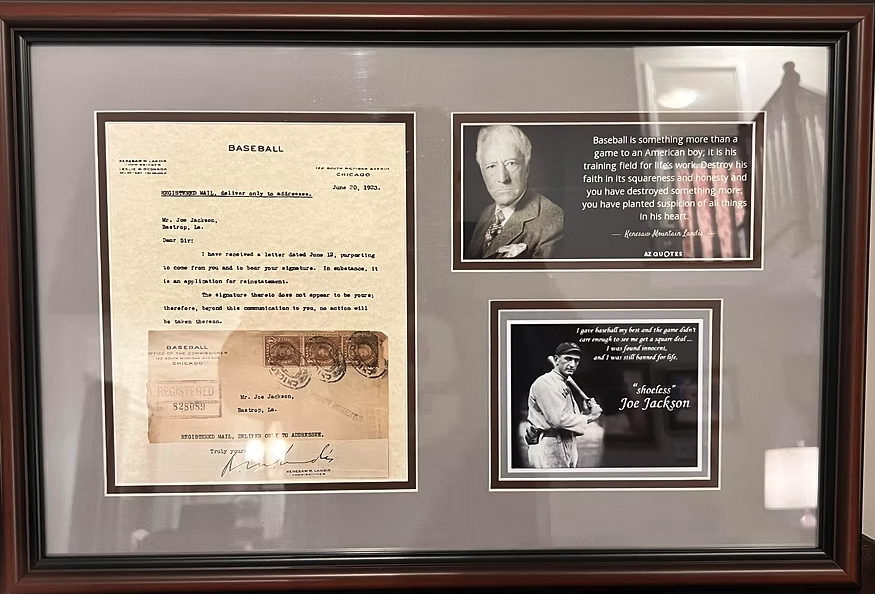 BASEBALL
KENESAW M. LANDIS
COMMISSIONER
LESLIE M. O'CONNOR
122 SOUTH MICHIGAN AVENUE
CHICAGO
June 20, 1923.
REGISTERED MAIL, deliver only to addressee.
Mr. Joe Jackson,
Bastrop, La.
Dear Sir:
I have received a letter dated June 12, purporting
to come from you and to bear your signature. In substance, it
is an application for reinstatement.
The signature thereto does not appear to be yours;
therefore, beyond this communication to you, no action will
be taken thereon.
BASEBALL
OFFICE OF THE COMMISSIONER
122 SOUTH MICHIGAN AVENUE
CHICAGO
REGISTERED
Mr. Joe Jackson,
Bastrop, La.
REGISTERED MAIL, DELIVER ONLY TO ADDRESSEE.
Truly yours
KENESAW M. LANDIS
COMMISSIONER
Baseball is something more than a
game to an American boy; it is his
training field for life's work. Destroy his
faith in its squareness and honesty and
you have destroyed something more;
you have planted suspicion of all things
in his heart.
— Kenesaw Mountain Landis —
AZ QUOTES
I gave baseball my best and the game didn't
care enough to see me get a square deal...
I was found innocent,
and I was still banned for life.
"shoeless"
Joe Jackson